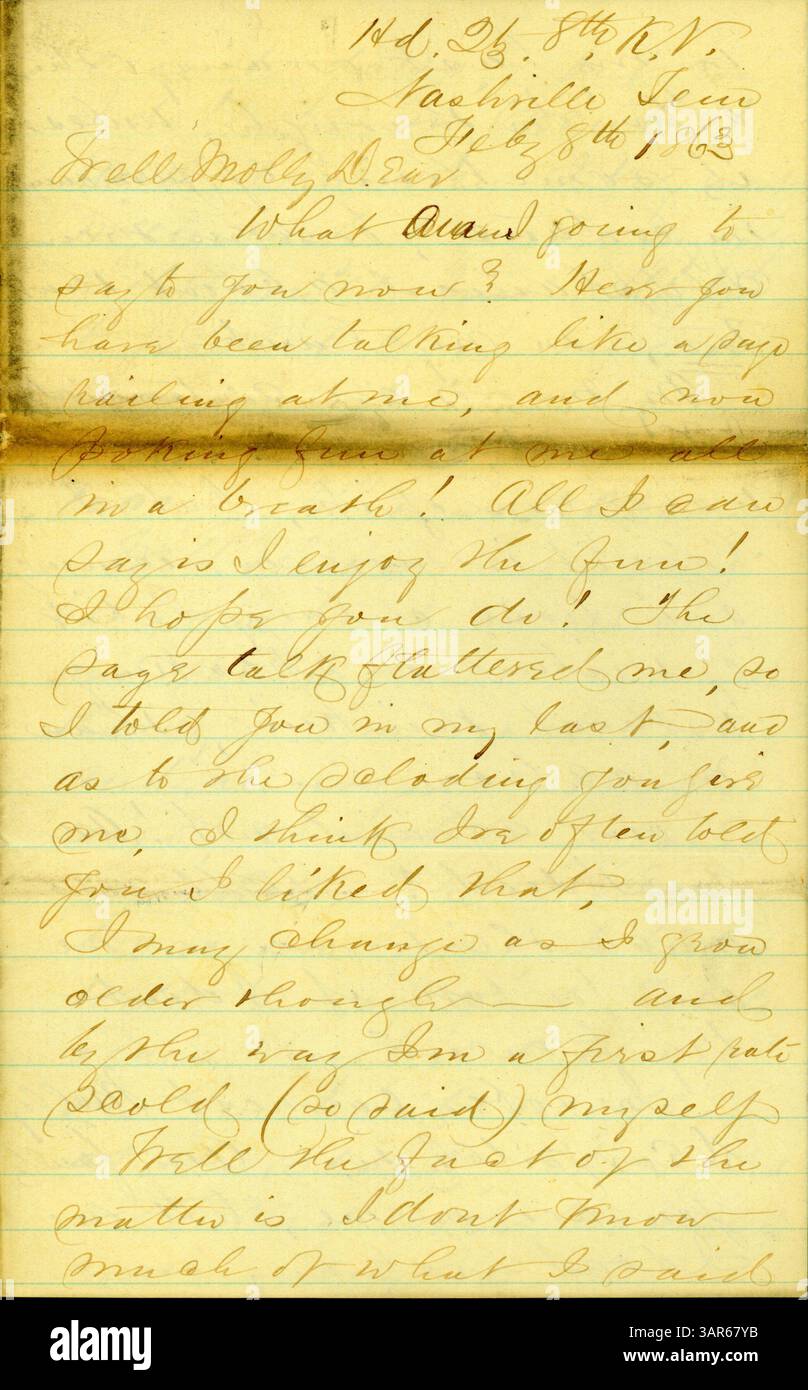 Hd. Qts. 8th K. V.
Nashville Tenn
Feby 8th 1863
Well Molly Dear
What am I going to
say to you now? Here you
have been talking like a sage
railing at me, and now
poking fun at me all
in a breath! All I can
say is I enjoy the fun!
I hope you do! The
sage talk flattered me, so
I told you in my last, and
as to the scloding you give
me, I think I've often told
you I liked that,
I may change as I grow
older though — and
by the way I'm a first rate
scold (so said) myself
Well the fact of the
matter is I dont know
much of what I said
alamy
alamy
Image ID: 3AR67YB
www.alamy.com